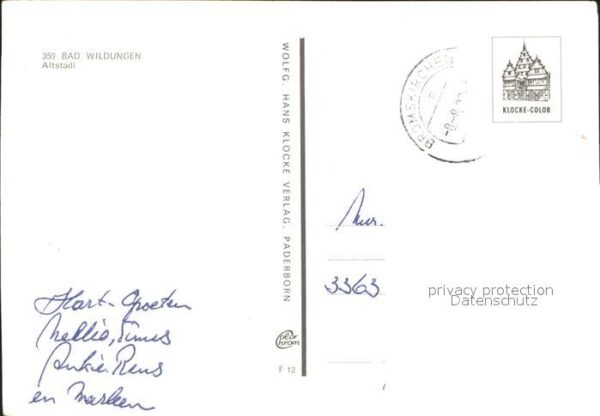 359 BAD WILDUNGEN
Altstadt
WOLFG. HANS KLOCKE VERLAG, PADERBORN
BROMSKIRCHEN
KLOCKE-COLOR
3363
privacy protection
Datenschutz
Hart. Groeten
Nellie, Timus
Ankie. Rens
en Marleen
color
chrom
F 12